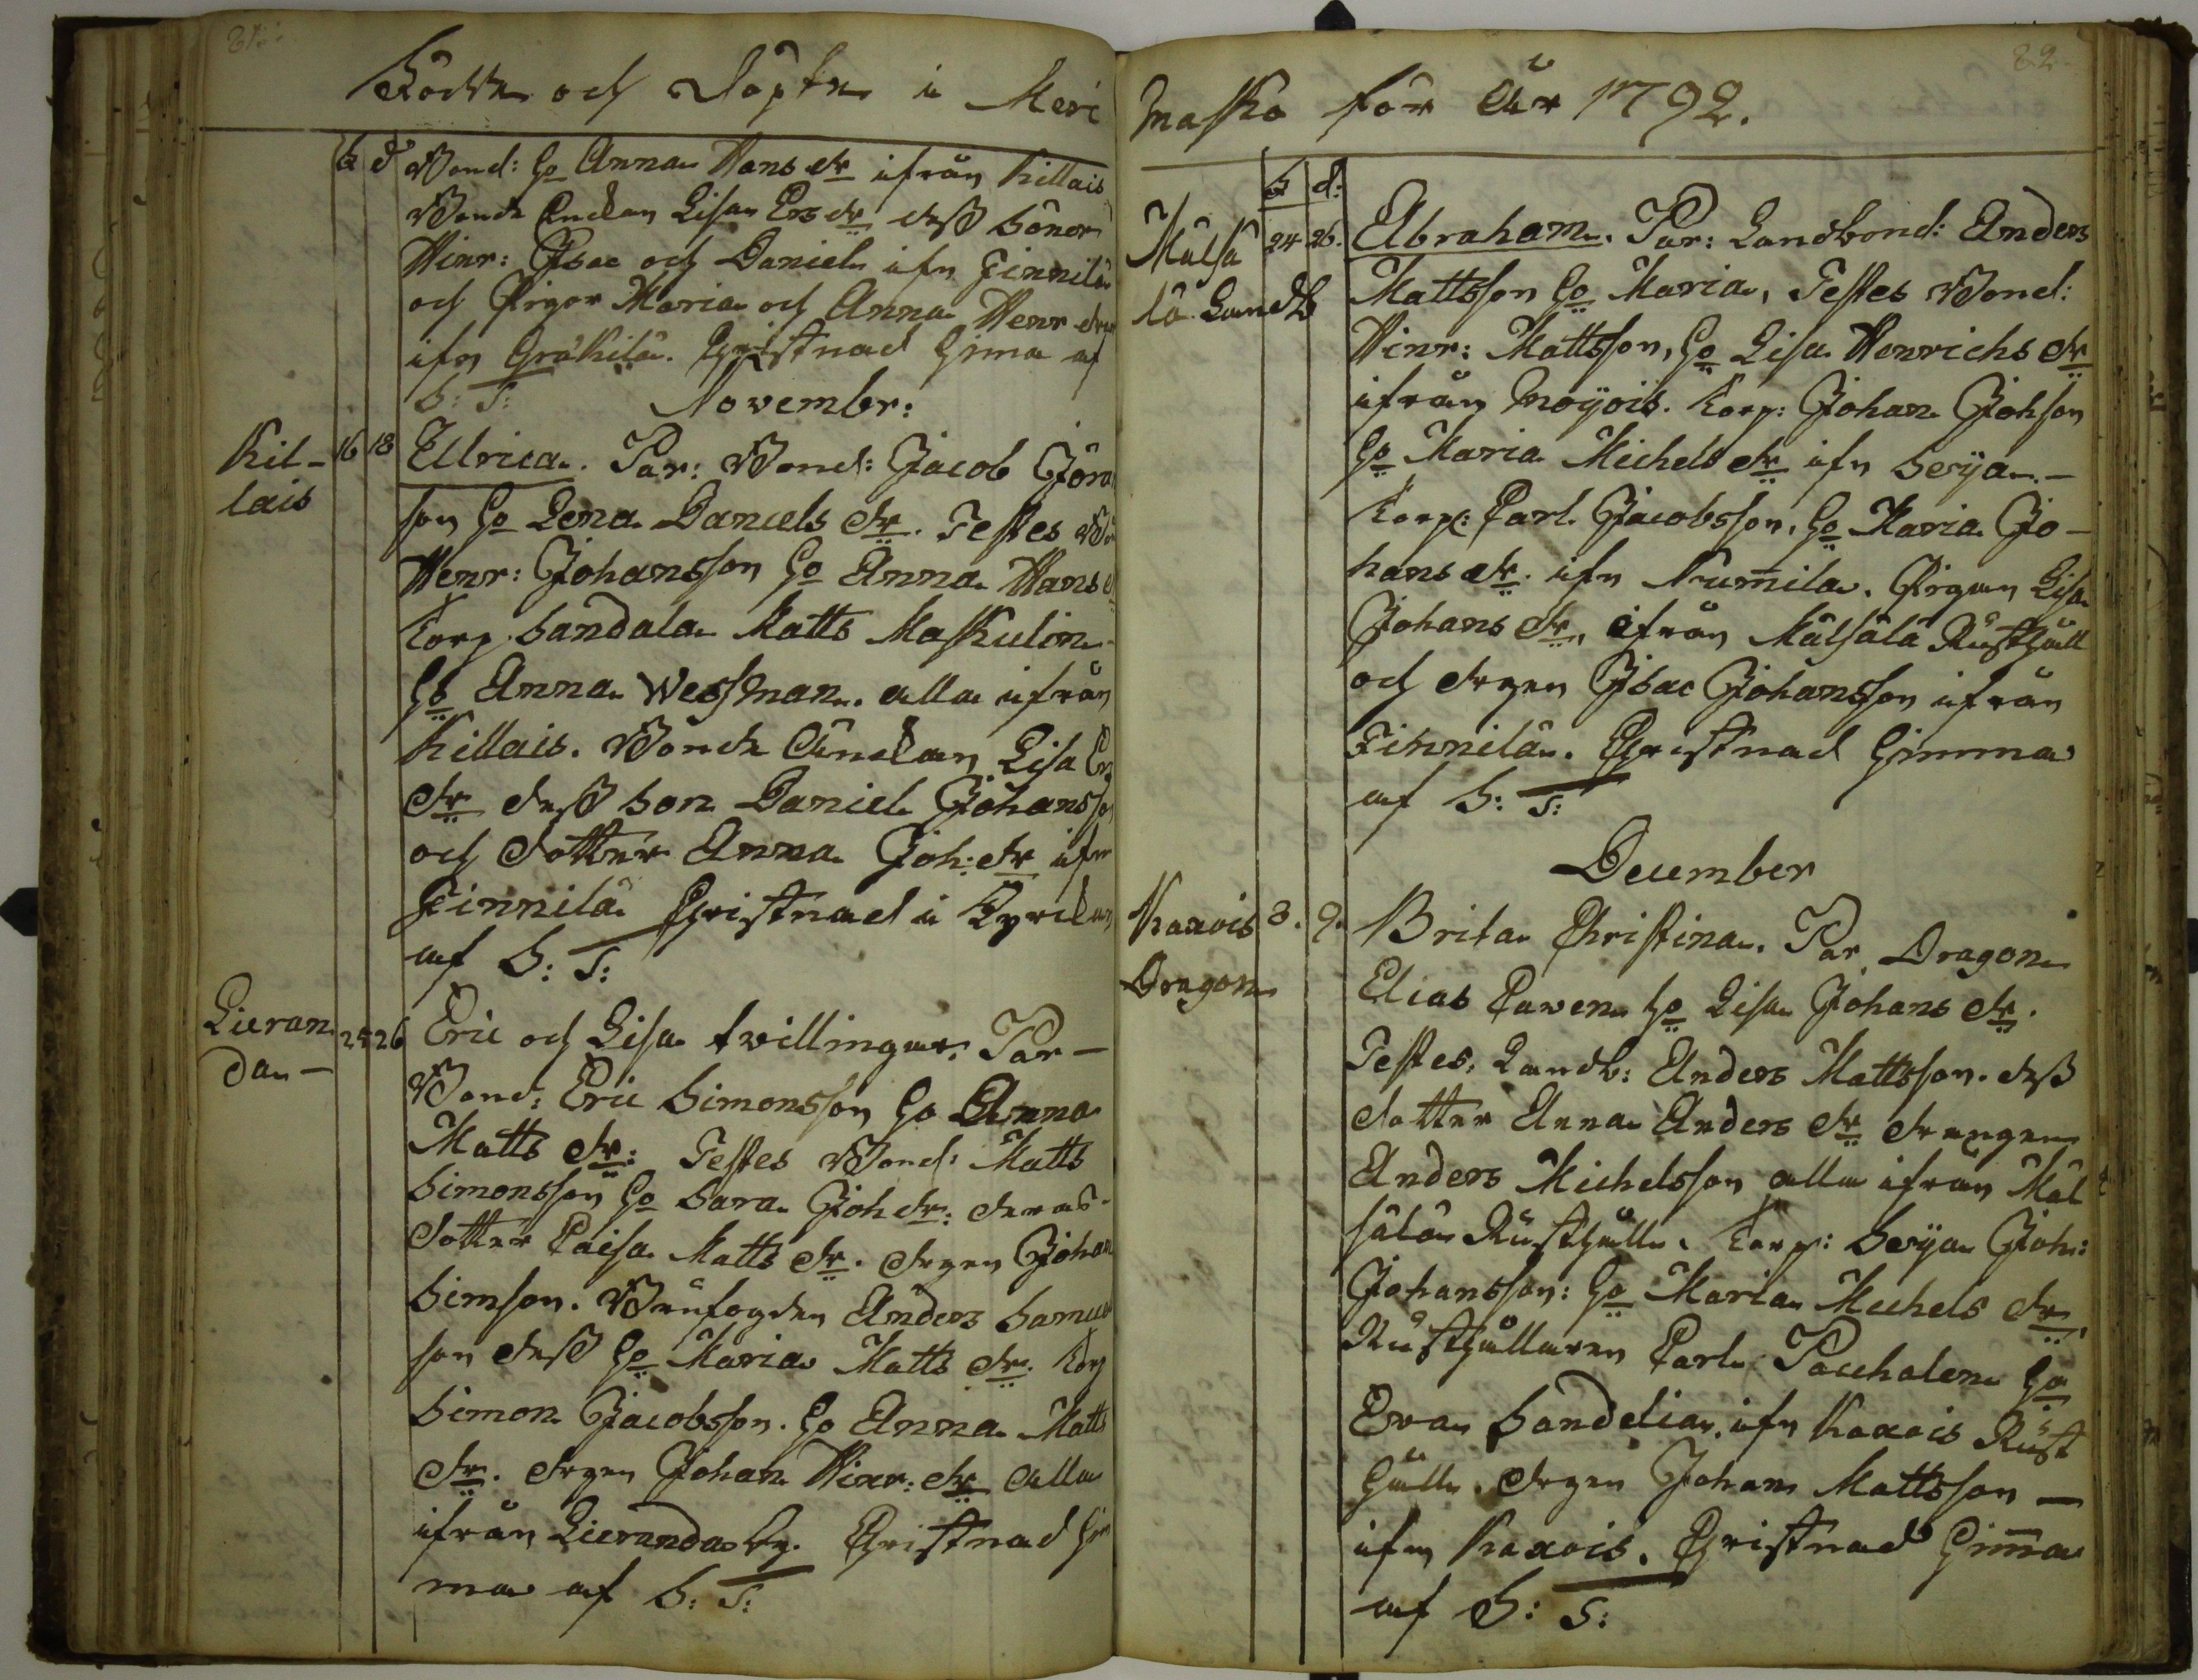 81
Födde och döpte i Meri
b d Bond: ho Anna Hans dr ifrån Killais
Bonde Enckan Lisa Ers dr dess Söner
Hinr: Isac och Daniel ifn Finnilä
och Pigor Maria och Anna Henr drar
ifn Gräkilä. Christnad hema af
S: T: Novembr:
Kil-
lais
16 18 Ulrica. Par: Bond: Jacob Göra
son ho Lena Daniels dr. Testes Bo
Henr: Johansson ho Anna Hans d
Torp. Sandala Matts Maskulin
ho Anna Wessman. alla ifrån
Killais. Bonde Enckan Lisa Er
dr dess son Daniel Johansso
och dotter Anna Joh: dr ifn
Finnilä Christnad i Kyrckan
af S: T:
Lieran
da-
25 26 Eric och Lisa tvillingar. Par-
Bond: Eric Simonsson ho Anna
Matts dr: Testes Bond: Matts
Simonsson ho Sara Joh dr: deras
dotter Caisa Matts dr. drgen Johan
Simson. Byfogden Anders Samuel
son dess ho Maria Matts dr. Torp
Simon Jacobsson. ho Anna Matts
dr. drgen Johan Hinr: dr alla
ifrån Lieranda by. Christnad he
ma af S: T:
82
masko för År 1792.
b d:
Mälsä
lä Landb
24 26. Abraham. Par: Landbond: Anders
Mattsson ho Maria, Testes Bond:
Hinr: Mattsson, ho Lisa Henrichs dr
ifrån Moijois. Torp: Johan Johson
ho Maria Michels dr ifn Seija.-
Torp: Carl Jacobsson, ho Maria Jo-
hans dr. ifn Numila. Pigan Lisa
Johans dr, ifrån Mälsälä Rusthåll
och drgen Isac Johansson ifrån
Finnilä. Christnad hemma
af S: T:
December
Kaxois
Dragon
8. 9. Brita Christina. Par Dragon
Elias Paven ho Lisa Johans dr.
Testes, Landb: Anders Mattsson. dess
dotter Anna Anders dr drengen
Anders Michelsson alla ifrån Mäl
sälä Rusthåll. Torp: Seija Joh:
Johansson: ho Maria Michels dr,
Rusthållaren Carl Paschalen ho
Eva Sandelia, ifn Kaxois Rust
håll. drgen Johan Mattsson -
ifn Kaxois. Christnad hemma
af S: T: